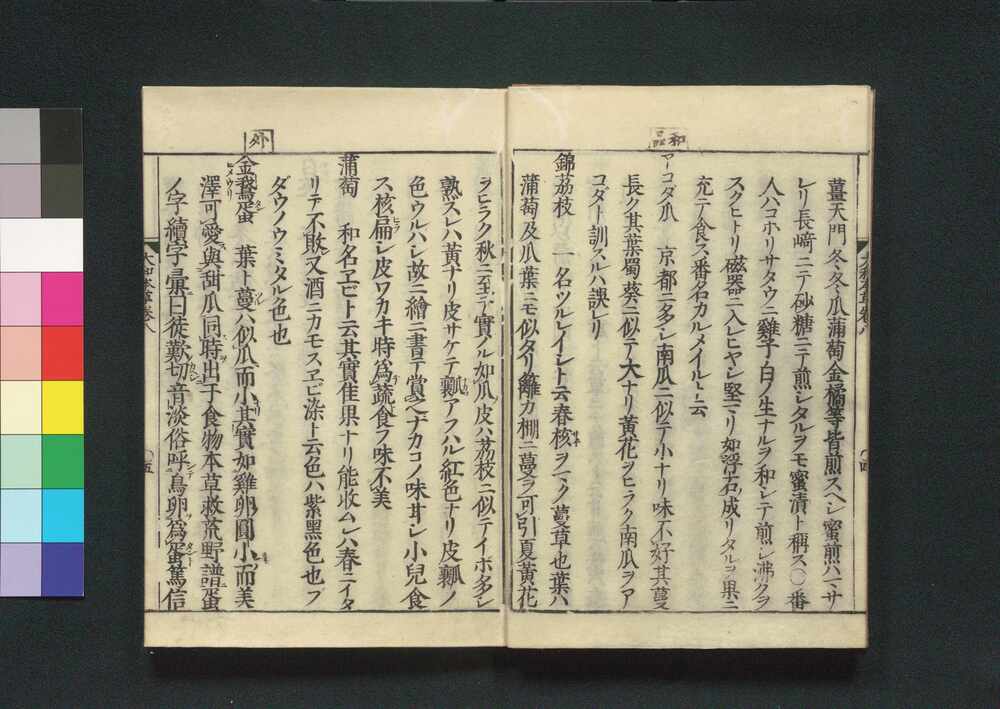 和品
薑天門冬冬瓜蒲萄金橘等皆煎スヘシ蜜煎ハマサ
レリ長﨑ニテ砂糖ニテ煎シタルヲモ蜜漬ト稱ス〇番
人ハコホリサタウニ雞子ノ白ノ生ナルヲ和シテ煎シ沸クヲ
スクヒトリ磁器ニ入レヒヤシ堅マリ如浮石成リタルヲ果ニ
充テ食ス番名カルメイルト云
アコダ瓜 京都ニ多シ南瓜ニ似テ小ナリ味不好其蔓
長ク其葉蜀葵ニ似テ大ナリ黄花ヲヒラク南瓜ヲア
コダト訓スルハ誤レリ
錦茘枝 一名ツルレイシト云春核ヲマク蔓草也葉ハ
蒲萄及瓜葉ニモ似タリ籬カ棚ニ蔓ヲ可引夏黄花
大和本草卷八
〇四
ヲヒラク秋ニ至テ實ノル如瓜皮ハ茘枝ニ似テイボ多シ
熟スレハ黄ナリ皮サケテ瓤アラハル紅色ナリ皮瓤ノ
色ウルハシ故ニ繪ニ書テ賞ヘナカコノ味甘シ小兒食
ス核扁シ皮ワカキ時爲蔬食フ味不美
蒲萄 和名ヱビト云其實佳果ナリ能收ムレハ春ニイタ
リテ不敗又酒ニカモスヱビ染ト云色ハ紫黑色也ブ
ダウノウミタル色也
外
金鵞蛋 葉ト蔓ハ似瓜而小其實如雞卵圓小而美
澤可愛與甜瓜同時出于食物本草救荒野譜蛋
ノ字續字彙曰徒歎切音淡俗呼鳥卵爲蛋篤信
大和本草卷八
〇五